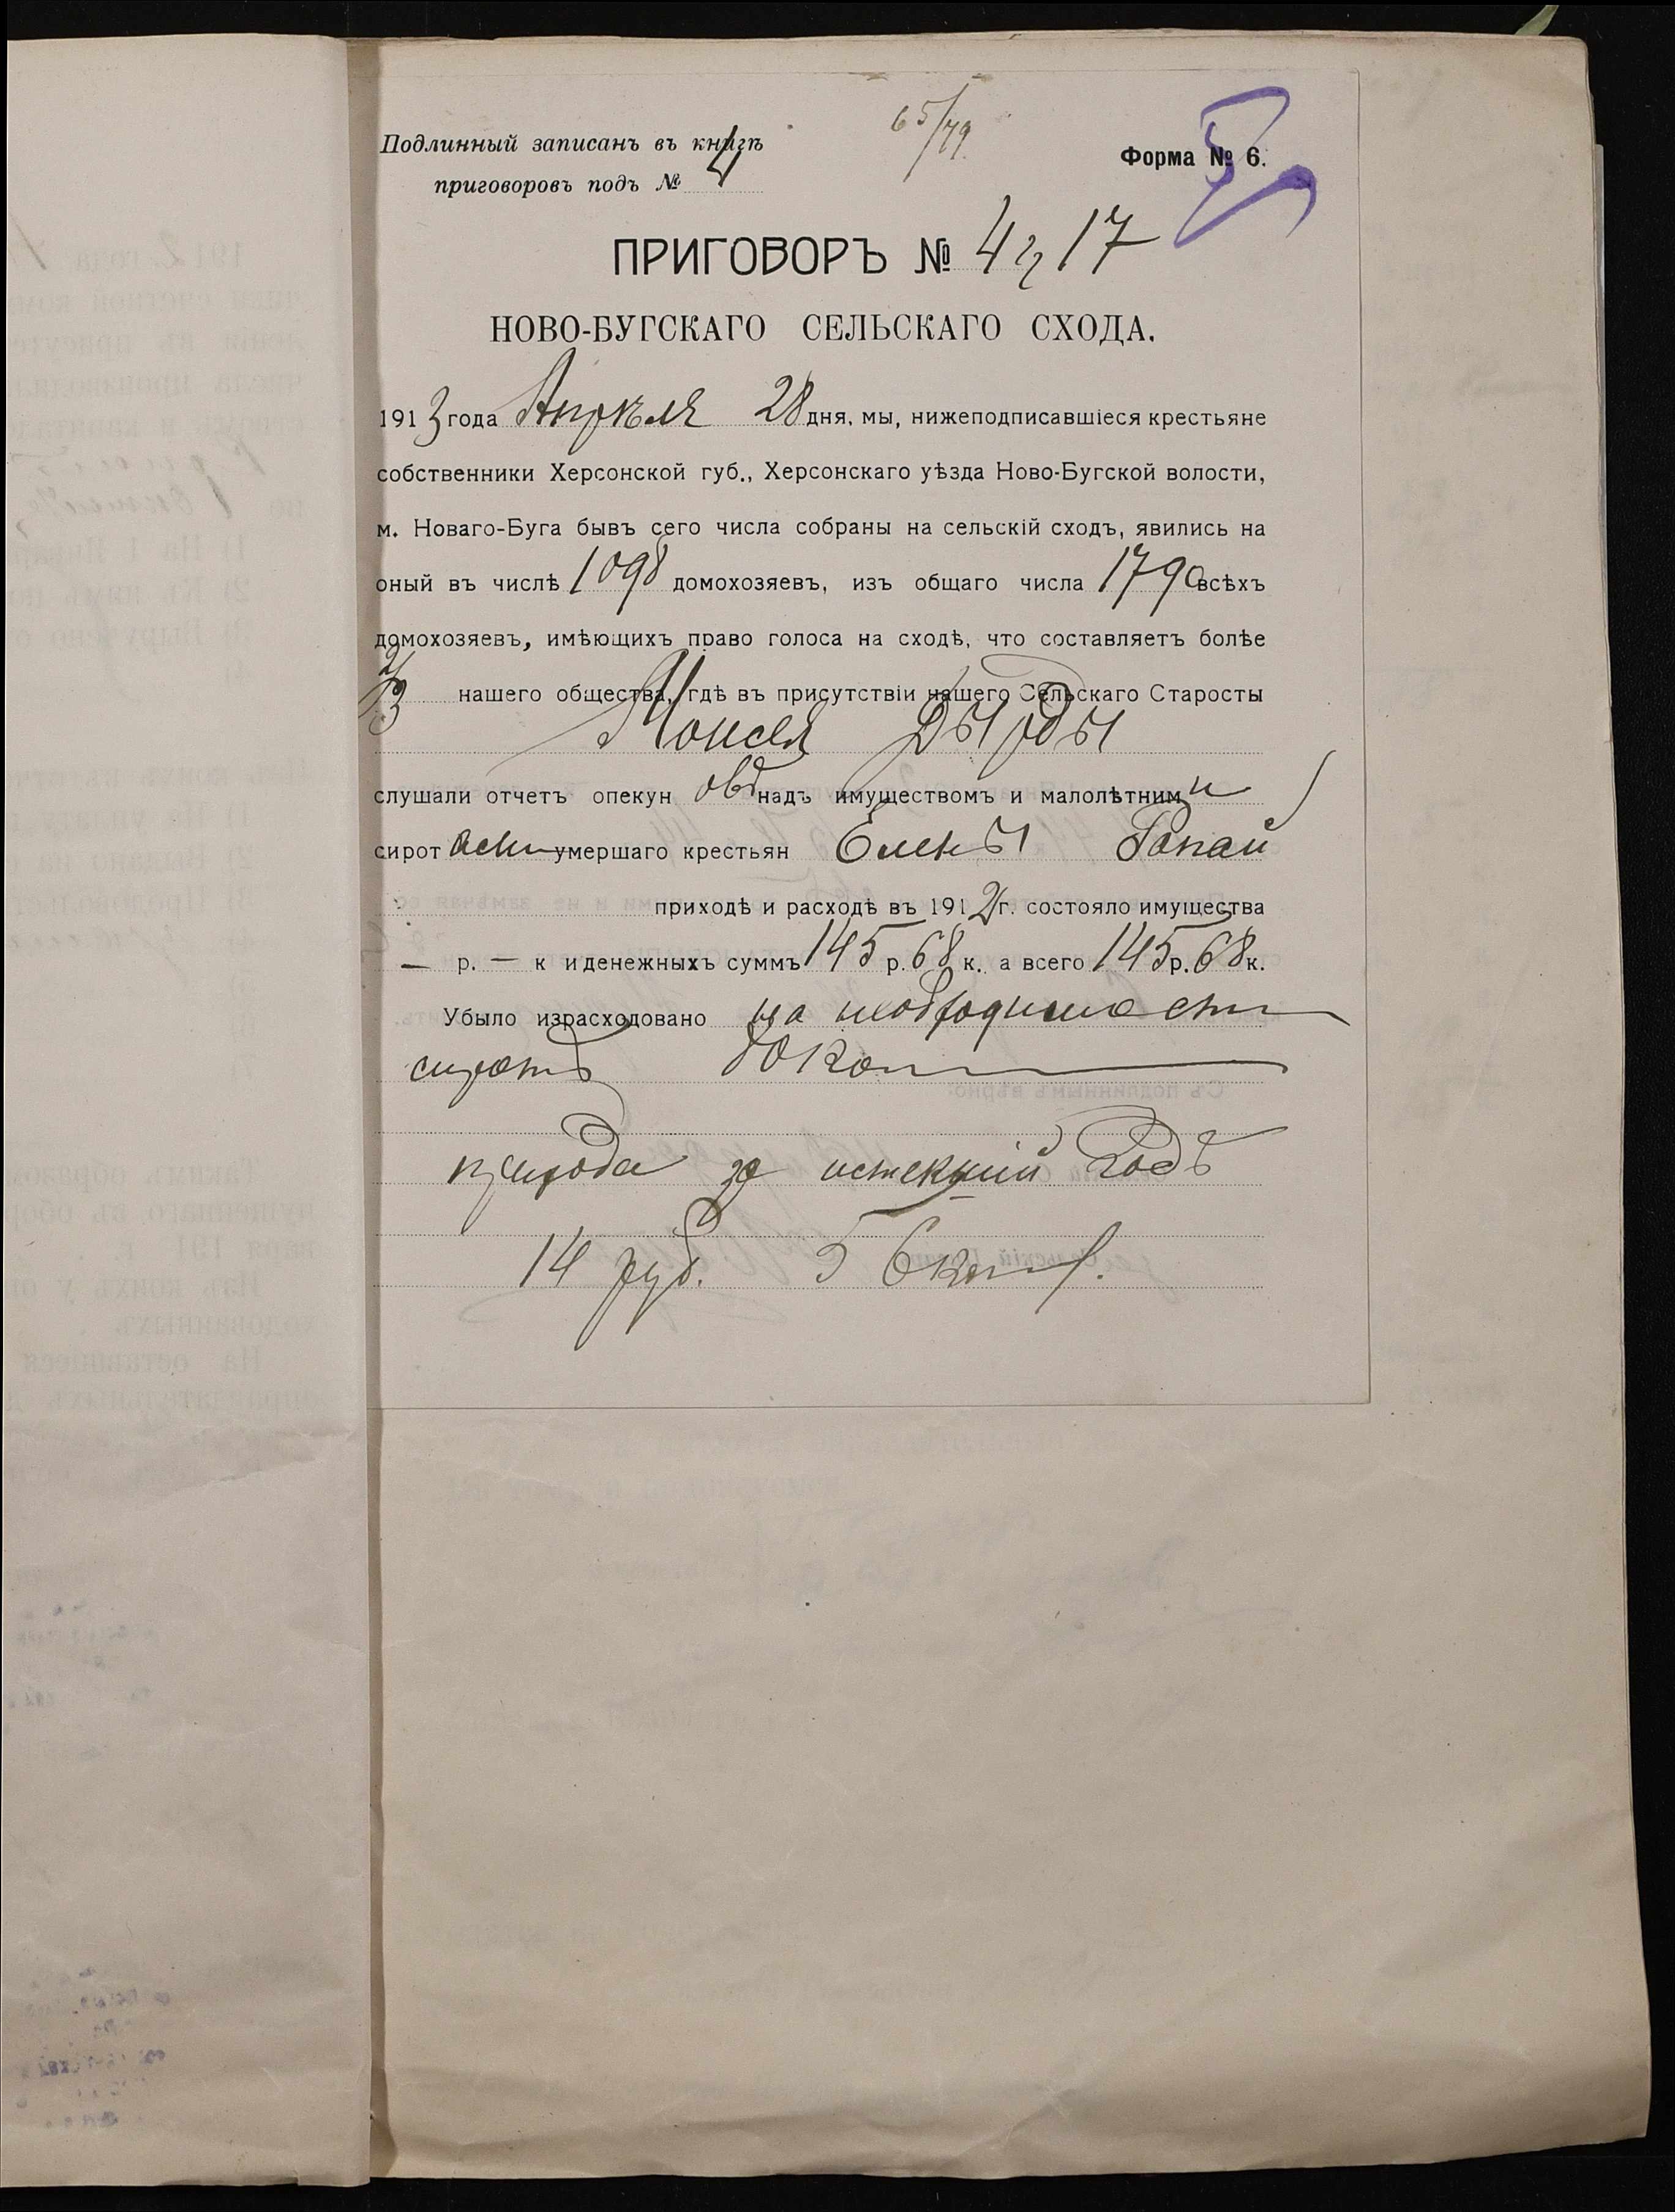 65/79
Подлинный записанъ въ книгѣ
приговоровъ подъ № 4
Форма № 6.
ПРИГОВОРЪ № 4 17
НОВО-БУГСКАГО СЕЛЬСКАГО СХОДА.
1913 года Апрѣля 28 дня, мы, нижеподписавшіеся крестьяне
собственники Херсонской губ., Херсонскаго уѣзда Ново-Бугской волости,
м. Новаго-Буга бывъ сего числа собраны на сельскій сходъ, явились на
оный въ числѣ 1098 домохозяевъ, изъ общаго числа 1790 всѣхъ
домохозяевъ, имѣющихъ право голоса на сходѣ, что составляетъ болѣе
2/3 нашего общества, гдѣ въ присутствіи нашего Сельскаго Старосты
Моисея Дырды
слушали отчетъ опекуновъ надъ имуществомъ и малолѣтними
сиротами умершаго крестьян Елены Гапай
приходѣ и расходѣ въ 1912 г. состояло имущества
— р. — к и денежныхъ суммъ 145 р. 68 к. а всего 145 р. 68 к.
Убыло израсходовано на необходимости
сиротъ 80 коп
прихода за истекшій годъ
14 руб. 56 коп.